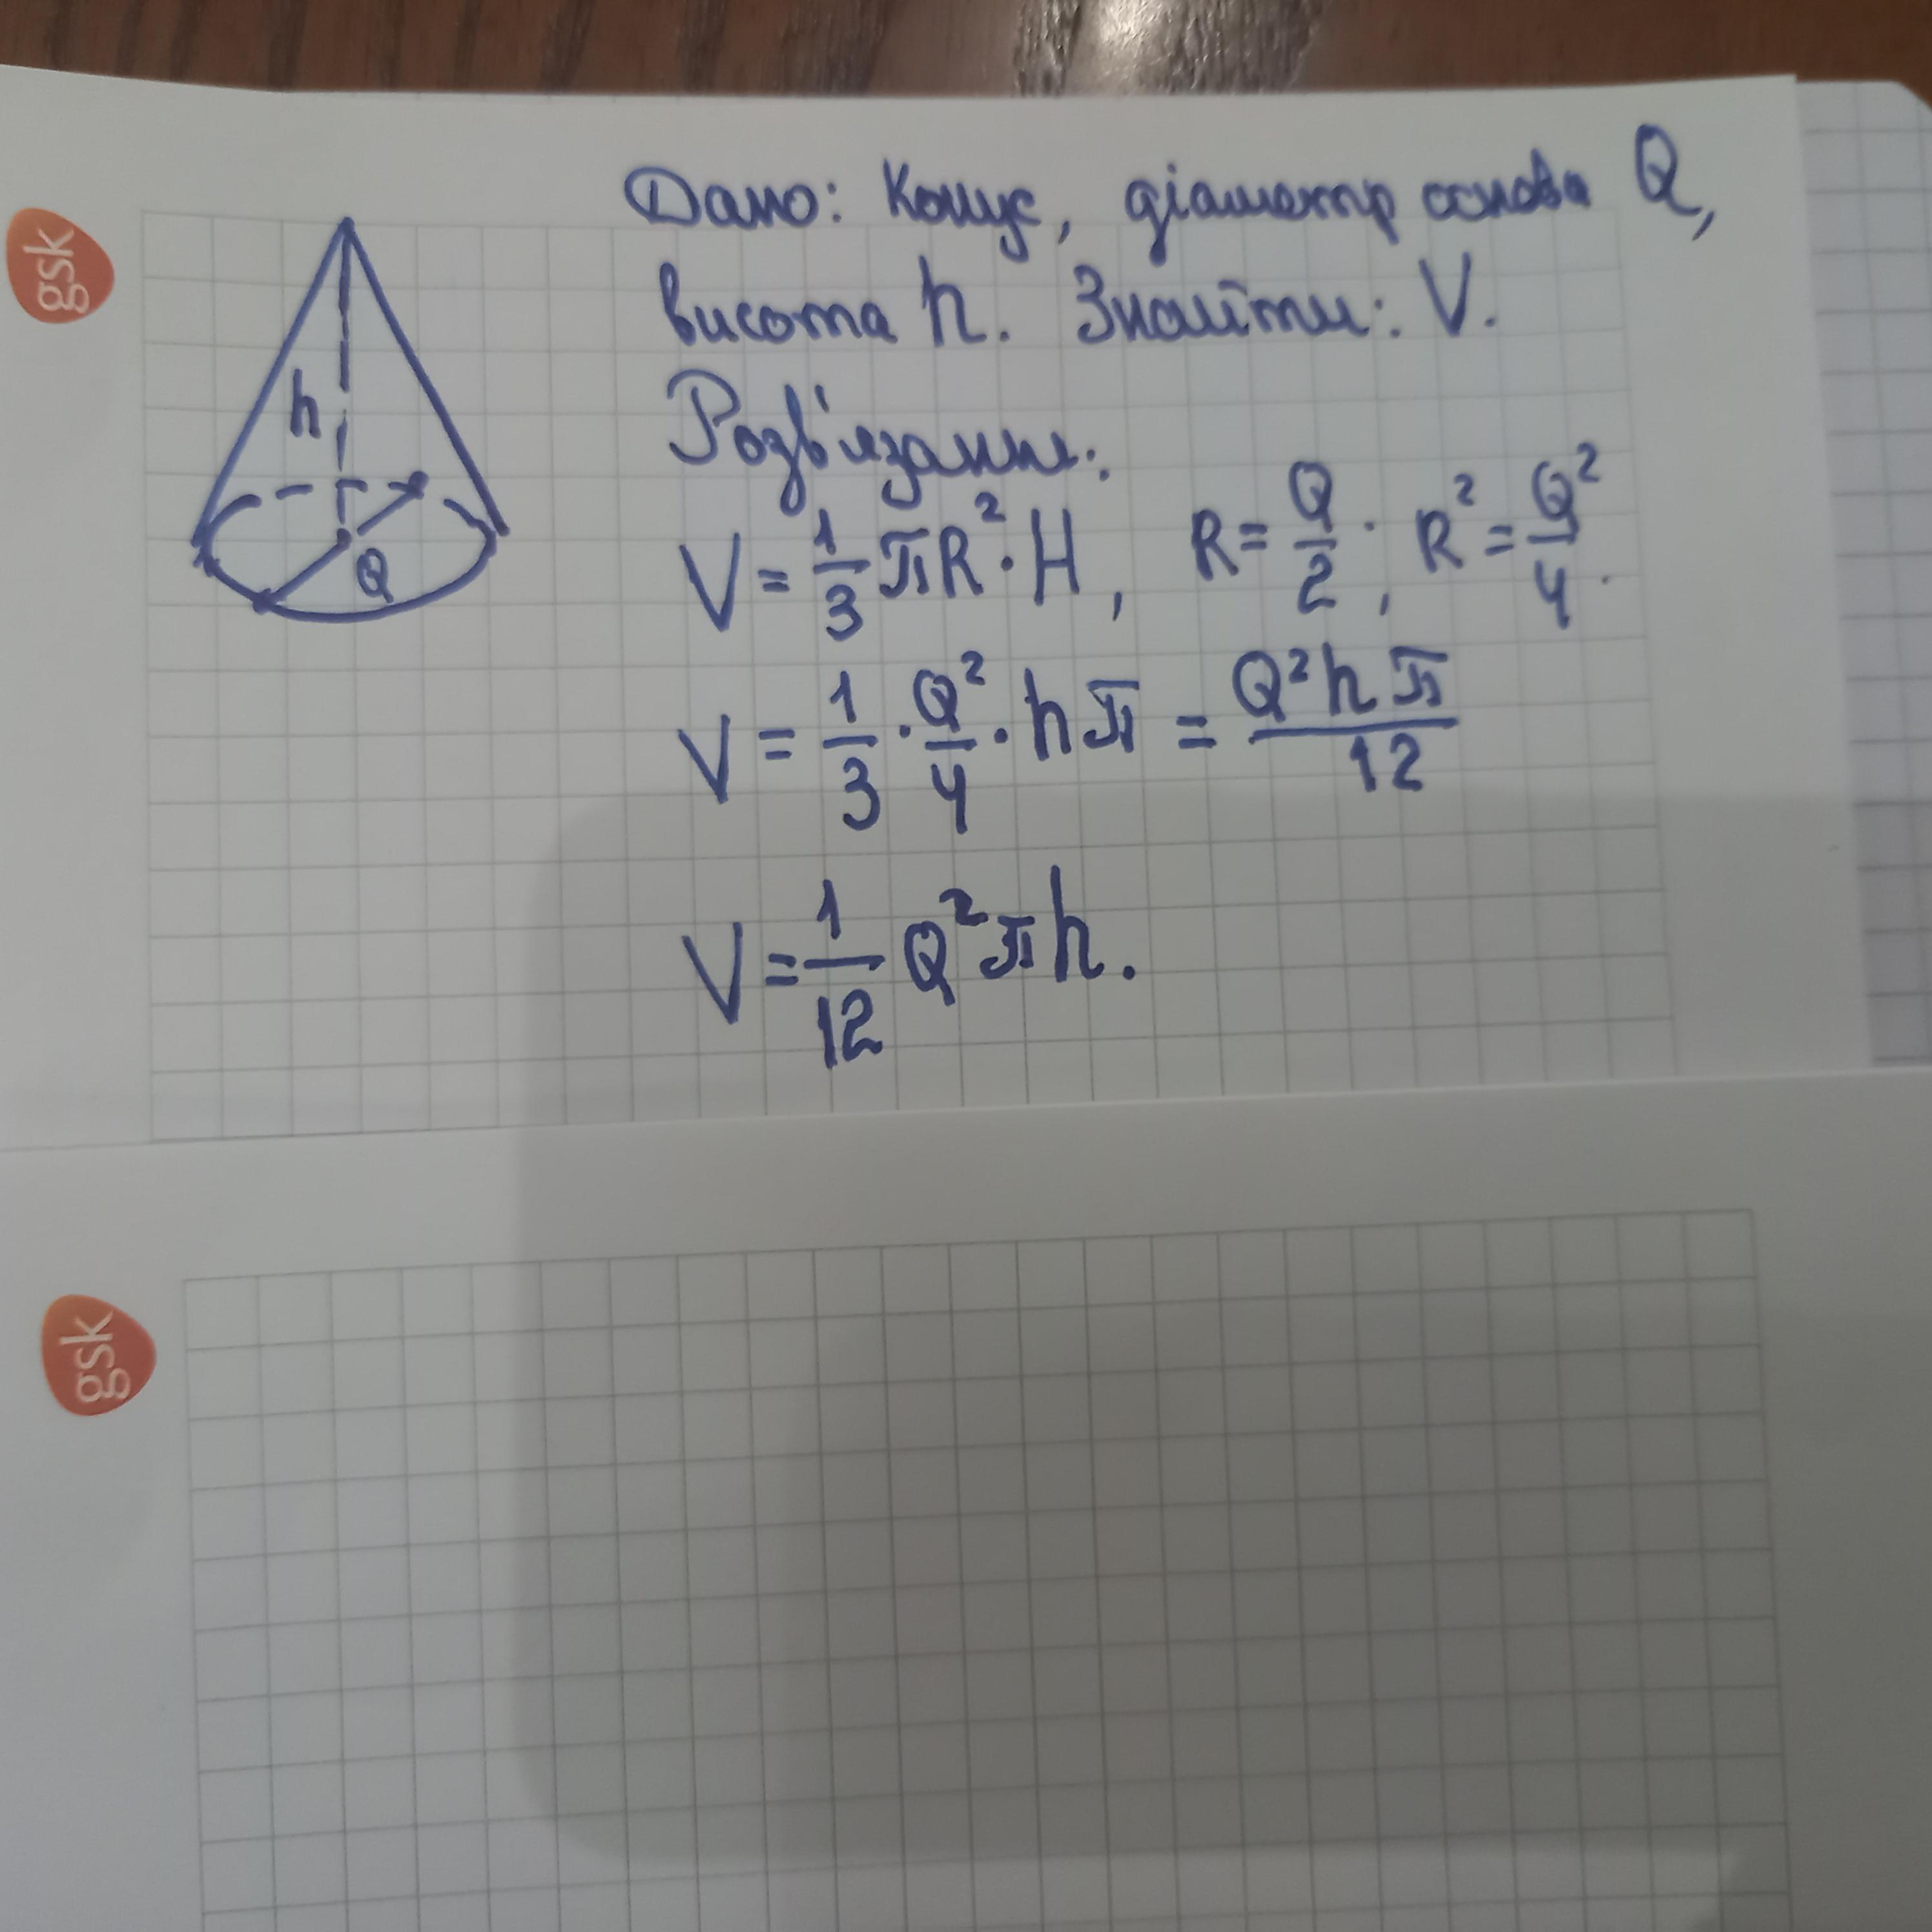 gsk
Дано: Конус, діаметр основи Q,
висота h. Знайти: V.
Розв'язання:
V = 1/3 πR² · H, R = Q/2, R² = Q²/4.
V = 1/3 · Q²/4 · hπ = Q²hπ/12
V = 1/12 Q²πh.
h
Q
gsk